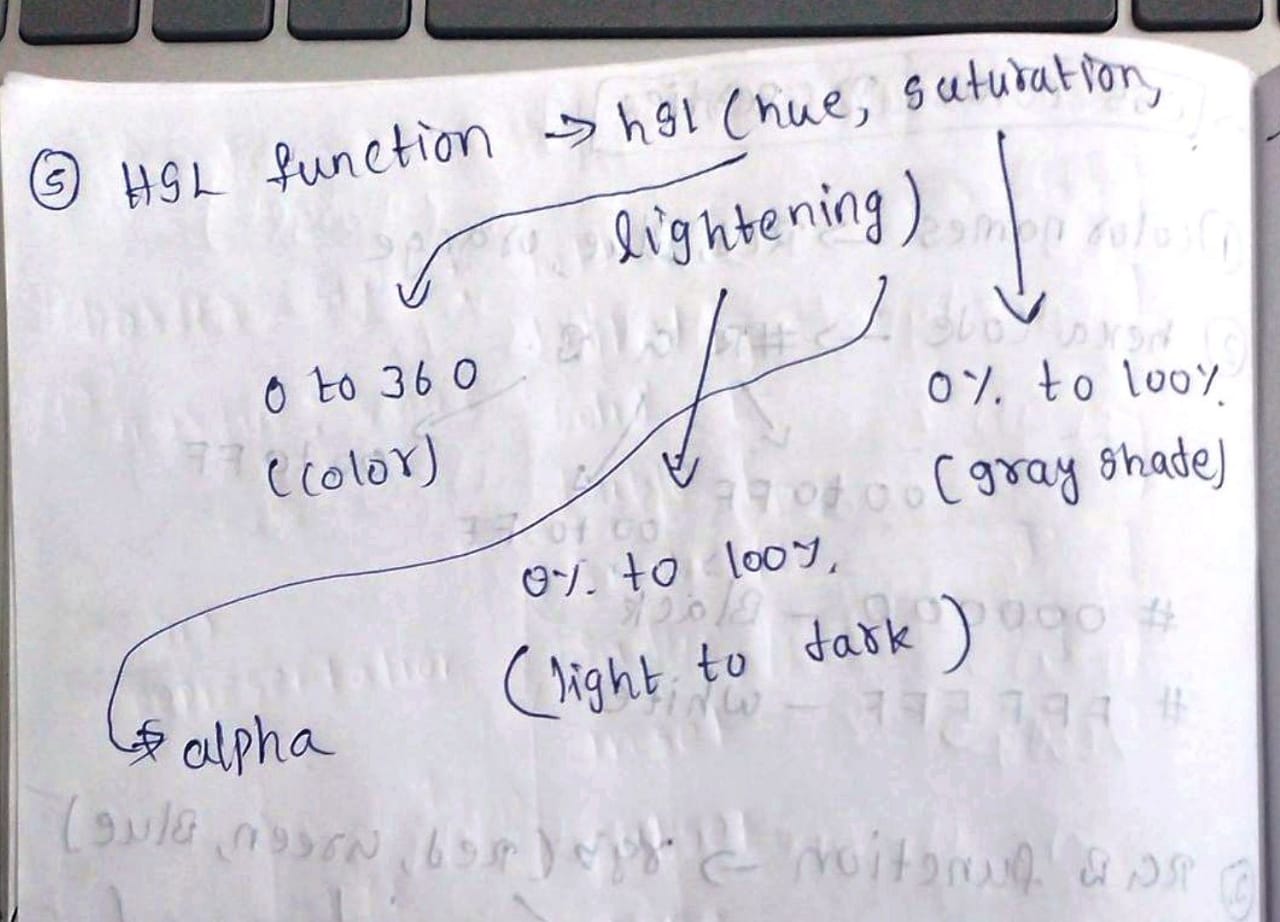 ⑤ HSL function → hsl (hue, suturation,
lightening)
0 to 360
(color)
0% to 100%
(gray shade)
0% to 100%.
(light to dark)
alpha